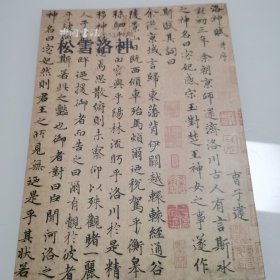 松雪洛神
洛神賦 并序
曹子建
黃初三年余朝京師還濟洛川古人有言斯水
之神名曰宓妃感宋玉對楚王神女之事遂作
斯賦其詞曰
余從京域言歸東藩背伊闕越轘轅經通谷
陵景山日既西傾車殆馬煩爾乃稅駕乎蘅皋
秣駟乎芝田容與乎陽林流眄乎洛川於是精
移神駭忽焉思散俯則未察仰以殊觀睹一麗
人于巖之畔迺援御者而告之曰爾有覿於彼者
乎彼何人斯若此之豔也御者對曰臣聞河洛之
神名曰宓妃然則君王之所見無迺是乎其狀若